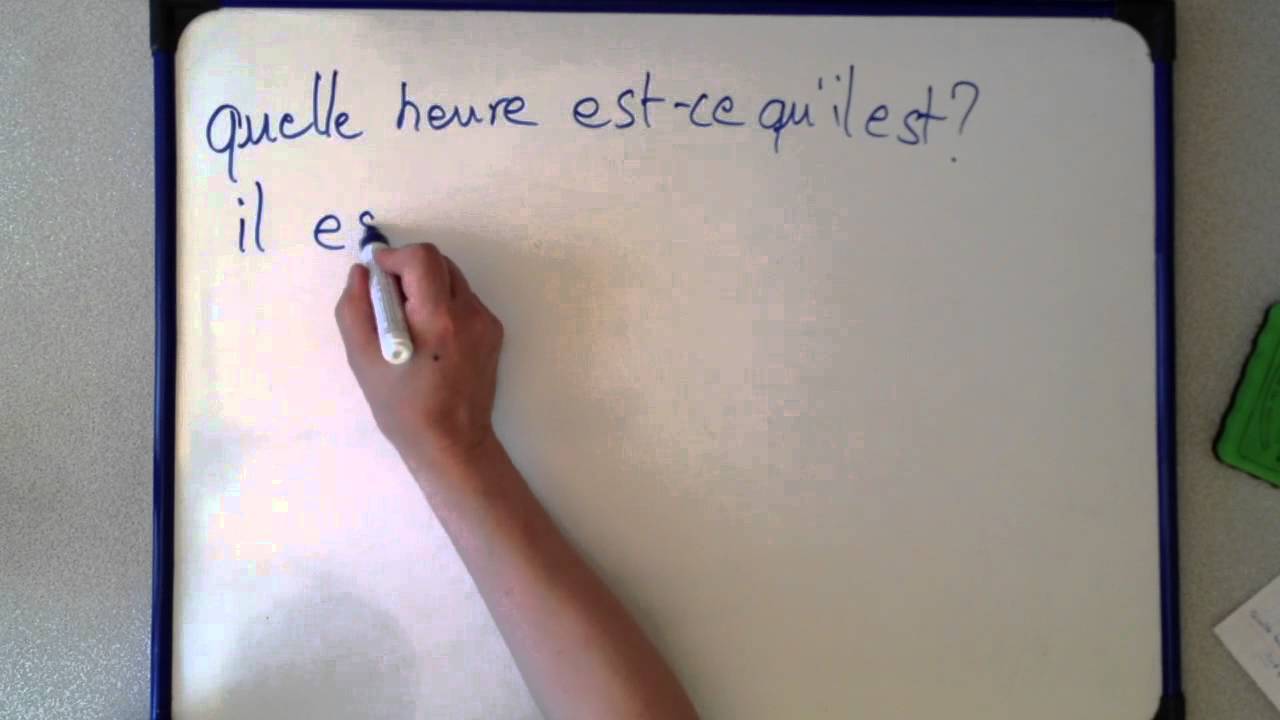 quelle heure est-ce qu'il est?
il es